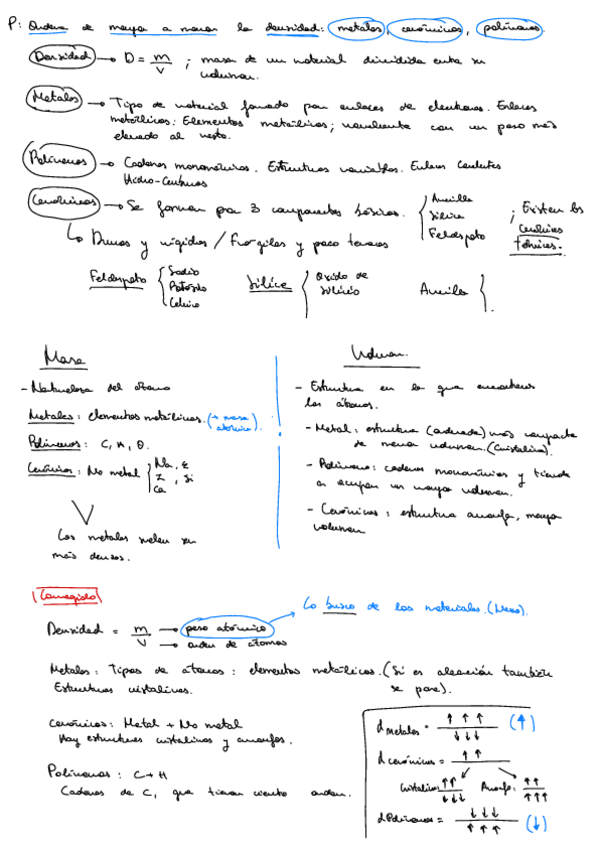 P: Ordena de mayor a menor la densidad: metales, cerámicos, polímeros.
Densidad → D = m/v ; masa de un material dividida entre su
volumen.
Metales → Tipo de material formado por enlaces de electrones. Enlaces
metálicos: Elementos metálicos; normalmente con un peso más
elevado al resto.
Polímeros → Cadenas monoméricas. Estructuras variables. Enlaces Covalentes
Hidro-Carbonos
Cerámicos → Se forman por 3 componentes básicos. { Arcilla Sílice Feldespato ; Existen los cerámicos técnicos.
↳ Duros y rígidos / Frágiles y poco tenaces
Feldespato { Sodio Potasio Calcio
Sílice { Óxido de silicio
Arcilla {
Masa
- Naturaleza del átomo
Metales: elementos metálicos. (+ masa atómica).
Polímeros: C, H, O.
Cerámicos: No metal { Na, Z, Ca, Si
Los metales suelen ser
más densos.
Volumen.
- Estructura en la que encontramos
los átomos.
- Metal: estructura (ordenada) más compacta
de menor volumen. (Cristalina).
- Polímero: cadenas monoméricas y tiende
a ocupar un mayor volumen.
- Cerámicos: estructura amorfa, mayor
volumen
Corregido
Lo busco de los materiales. (Mesa).
Densidad = m/v → peso atómico
→ orden de átomos
Metales: Tipos de átomos: elementos metálicos. (Si es aleación también
se pone).
Estructuras cristalinas.
Cerámicos: Metal + No metal
Hay estructuras cristalinas y amorfas.
Polímeros: C + H
Cadenas de C, que tienen cierto orden.
d metales = ↑↑↑ / ↓↓↓ (↑)
d cerámicos = ↑↑
Cristalinos ↑↑ / ↓↓↓ Amorfo: ↑↑ / ↑↑↑
d Polímeros = ↓↓↓ / ↑↑↑ (↓)